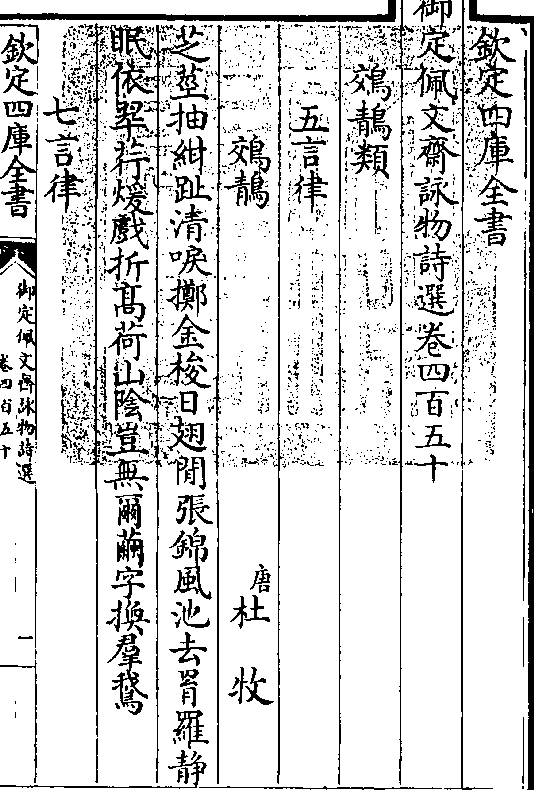 欽定四庫全書
御定佩文齋詠物詩選卷四百五十
鵁鶄類
五言律
鵁鶄 唐 杜牧
芝莖抽紺趾清唳擲金梭日翅閒張錦風池去罥羅静
眠依翠荇煖戲折髙荷山陰豈無爾繭字換羣鵞
七言律
欽定四庫全書
御定佩文齋詠物詩選
卷四百五十
一